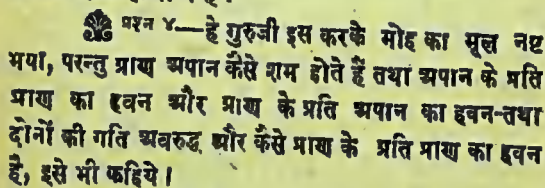 प्रश्न ४—हे गुरुजी इस करके मोह का मूल नष्ट
भया, परन्तु प्राण अपान कैसे शम होते हैं तथा अपान के प्रति
प्राण का हवन और प्राण के प्रति अपान का हवन-तथा
दोनों की गति अवरुद्ध और कैसे प्राण के प्रति प्राण का हवन
है, इसे भी कहिये।